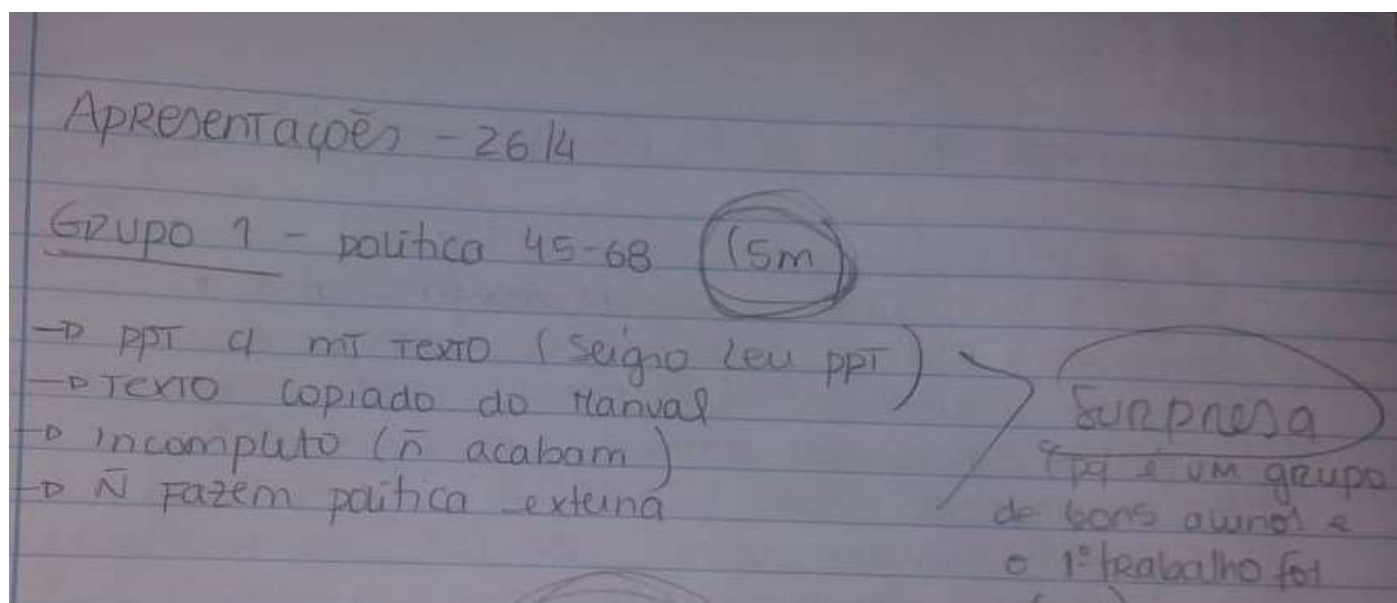 Apresentações - 26/4
Grupo 1 - política 45-68 15m
→ PPT c/ mt texto (Sérgio leu PPT)
→ Texto copiado do Manual
→ incompleto (ñ acabam)
→ Ñ Fazem política externa
Surpresa
pq é um grupo
de bons alunos e
o 1º trabalho foi